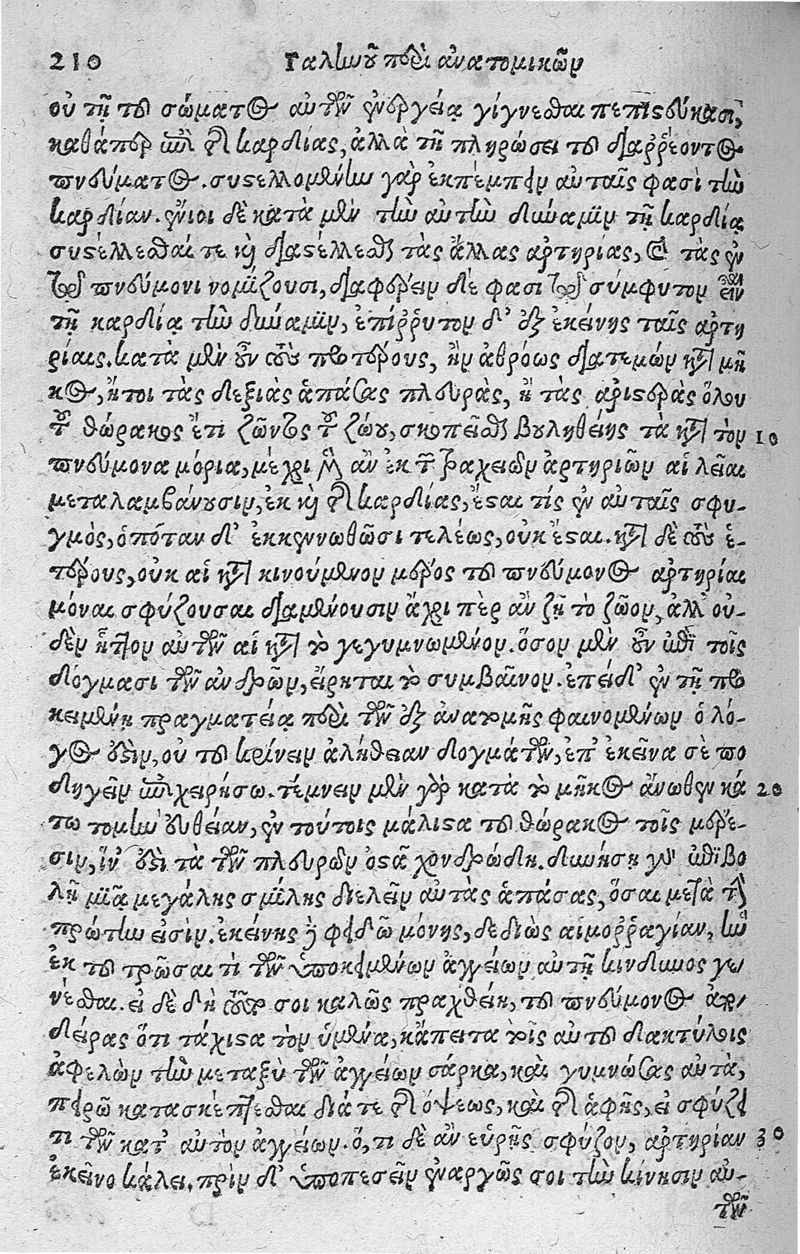 210 Γαληνοῦ περὶ ἀνατομικῶν
οὐ τῇ τοῦ σώματος αὐτῶν ἐνεργείᾳ γίγνεσθαι πεπιστεύκασι,
καθάπερ ἐπὶ τῆς καρδίας, ἀλλὰ τῇ πληρώσει τοῦ διαῤῥέοντος
πνεύματος. συστελλομένην γὰρ ἐκπέμπειν αὐταῖς φασὶ τὴν
καρδίαν. ἔνιοι δὲ κατὰ μὲν τὴν αὐτὴν δύναμιν τῇ καρδίᾳ
συστέλλεσθαί τε καὶ διαστέλλεσθαι τὰς ἄλλας ἀρτηρίας, καὶ τὰς ἐν
τῷ πνεύμονι νομίζουσι, διαφέρειν δέ φασι τῷ σύμφυτον εἶναι
τῇ καρδίᾳ τὴν δύναμιν, ἐπίῤῥυτον δ' ἐξ ἐκείνης ταῖς ἀρτη
ρίαις. κατὰ μὲν οὖν τοὺς προτέρους, ἢν ἀθρόως διατεμὼν κατὰ μῆ
κος, ἤτοι τὰς δεξιὰς ἁπάσας πλευρὰς, ἢ τὰς ἀριστερὰς ὅλου
τοῦ θώρακος ἔτι ζῶντος τοῦ ζώου, σκοπεῖσθαι βουληθείης τὰ κατὰ τὸν 10
πνεύμονα μόρια, μέχρι μὲν ἂν ἐκ τῶν τραχειῶν ἀρτηριῶν αἱ λεῖαι
μεταλαμβάνουσιν, ἐκ καὶ τῆς καρδίας, ἔσται τίς ἐν αὐταῖς σφυ-
γμὸς, ὁπόταν δ' ἐκκενωθῶσι τελέως, οὐκ ἔσται. κατὰ δὲ τοὺς ἑ-
τέρους, οὐκ αἱ κατὰ κινούμενον μέρος τοῦ πνεύμονος ἀρτηρίαι
μόναι σφύζουσαι διαμένουσιν ἄχρι πὲρ ἂν ζῇ τὸ ζῶον, ἀλλ' οὐ-
δὲν ἧττον αὐτῶν αἱ κατὰ τὸ γεγυμνωμένον. ὅσον μὲν οὖν ἐπὶ τοῖς
δόγμασι τῶν ἀνδρῶν, εἴρηται τὸ συμβαῖνον. ἐπεὶ δ' ἐν τῇ προ
κειμένῃ πραγματείᾳ περὶ τῶν ἐξ ἀνατομῆς φαινομένων ὁ λό-
γος ἐστὶν, οὐ τοῦ κρίνειν ἀλήθειαν δογμάτων, ἐπ' ἐκεῖνα σὲ πο
δηγεῖν ἐπιχειρήσω. τέμνειν μὲν γὰρ κατὰ τὸ μῆκος ἄνωθεν κά 20
τω τομὴν εὐθεῖαν, ἐν τούτοις μάλιστα τοῦ θώρακος τοῖς μέρε-
σιν, ἵν' ἐστὶ τὰ τῶν πλευρῶν ὀστᾶ χονδρώδη. δυνήσῃ γὰρ ἐπιβο
λῇ μιᾷ μεγάλης σμίλης διελεῖν αὐτὰς ἁπάσας, ὅσαι μετὰ τὴν
πρώτην εἰσὶν. ἐκείνης δὲ φείδῳ μόνης, δεδιὼς αἱμοῤῥαγίαν, ἣν
ἐκ τοῦ τρῶσαι τὶ τῶν ὑποκειμένων ἀγγείων αὐτῇ κίνδυνος γε/
νέσθαι. εἰ δὲ δὴ τοῦτό σοι καλῶς πραχθείη, τοῦ πνεύμονος ἀπο/
δείρας ὅτι τάχιστα τὸν ὑμένα, κἄπειτα τοῖς αὐτοῦ δακτύλοις
ἀφελὼν τὴν μεταξὺ τῶν ἀγγείων σάρκα, καὶ γυμνώσας αὐτὰ,
πειρῶ κατασκέπτεσθαι διά τε τῆς ὄψεως, καὶ τῆς ἁφῆς, εἰ σφύζει
τι τῶν κατ' αὐτὸν ἀγγείων. ὅ, τι δὲ ἂν εὕρῃς σφύζον, ἀρτηρίαν 30
ἐκεῖνο κάλει. πρὶν δ' ὑποπεσεῖν ἐναργῶς σοι τὴν κίνησιν αὐ-
τῶν